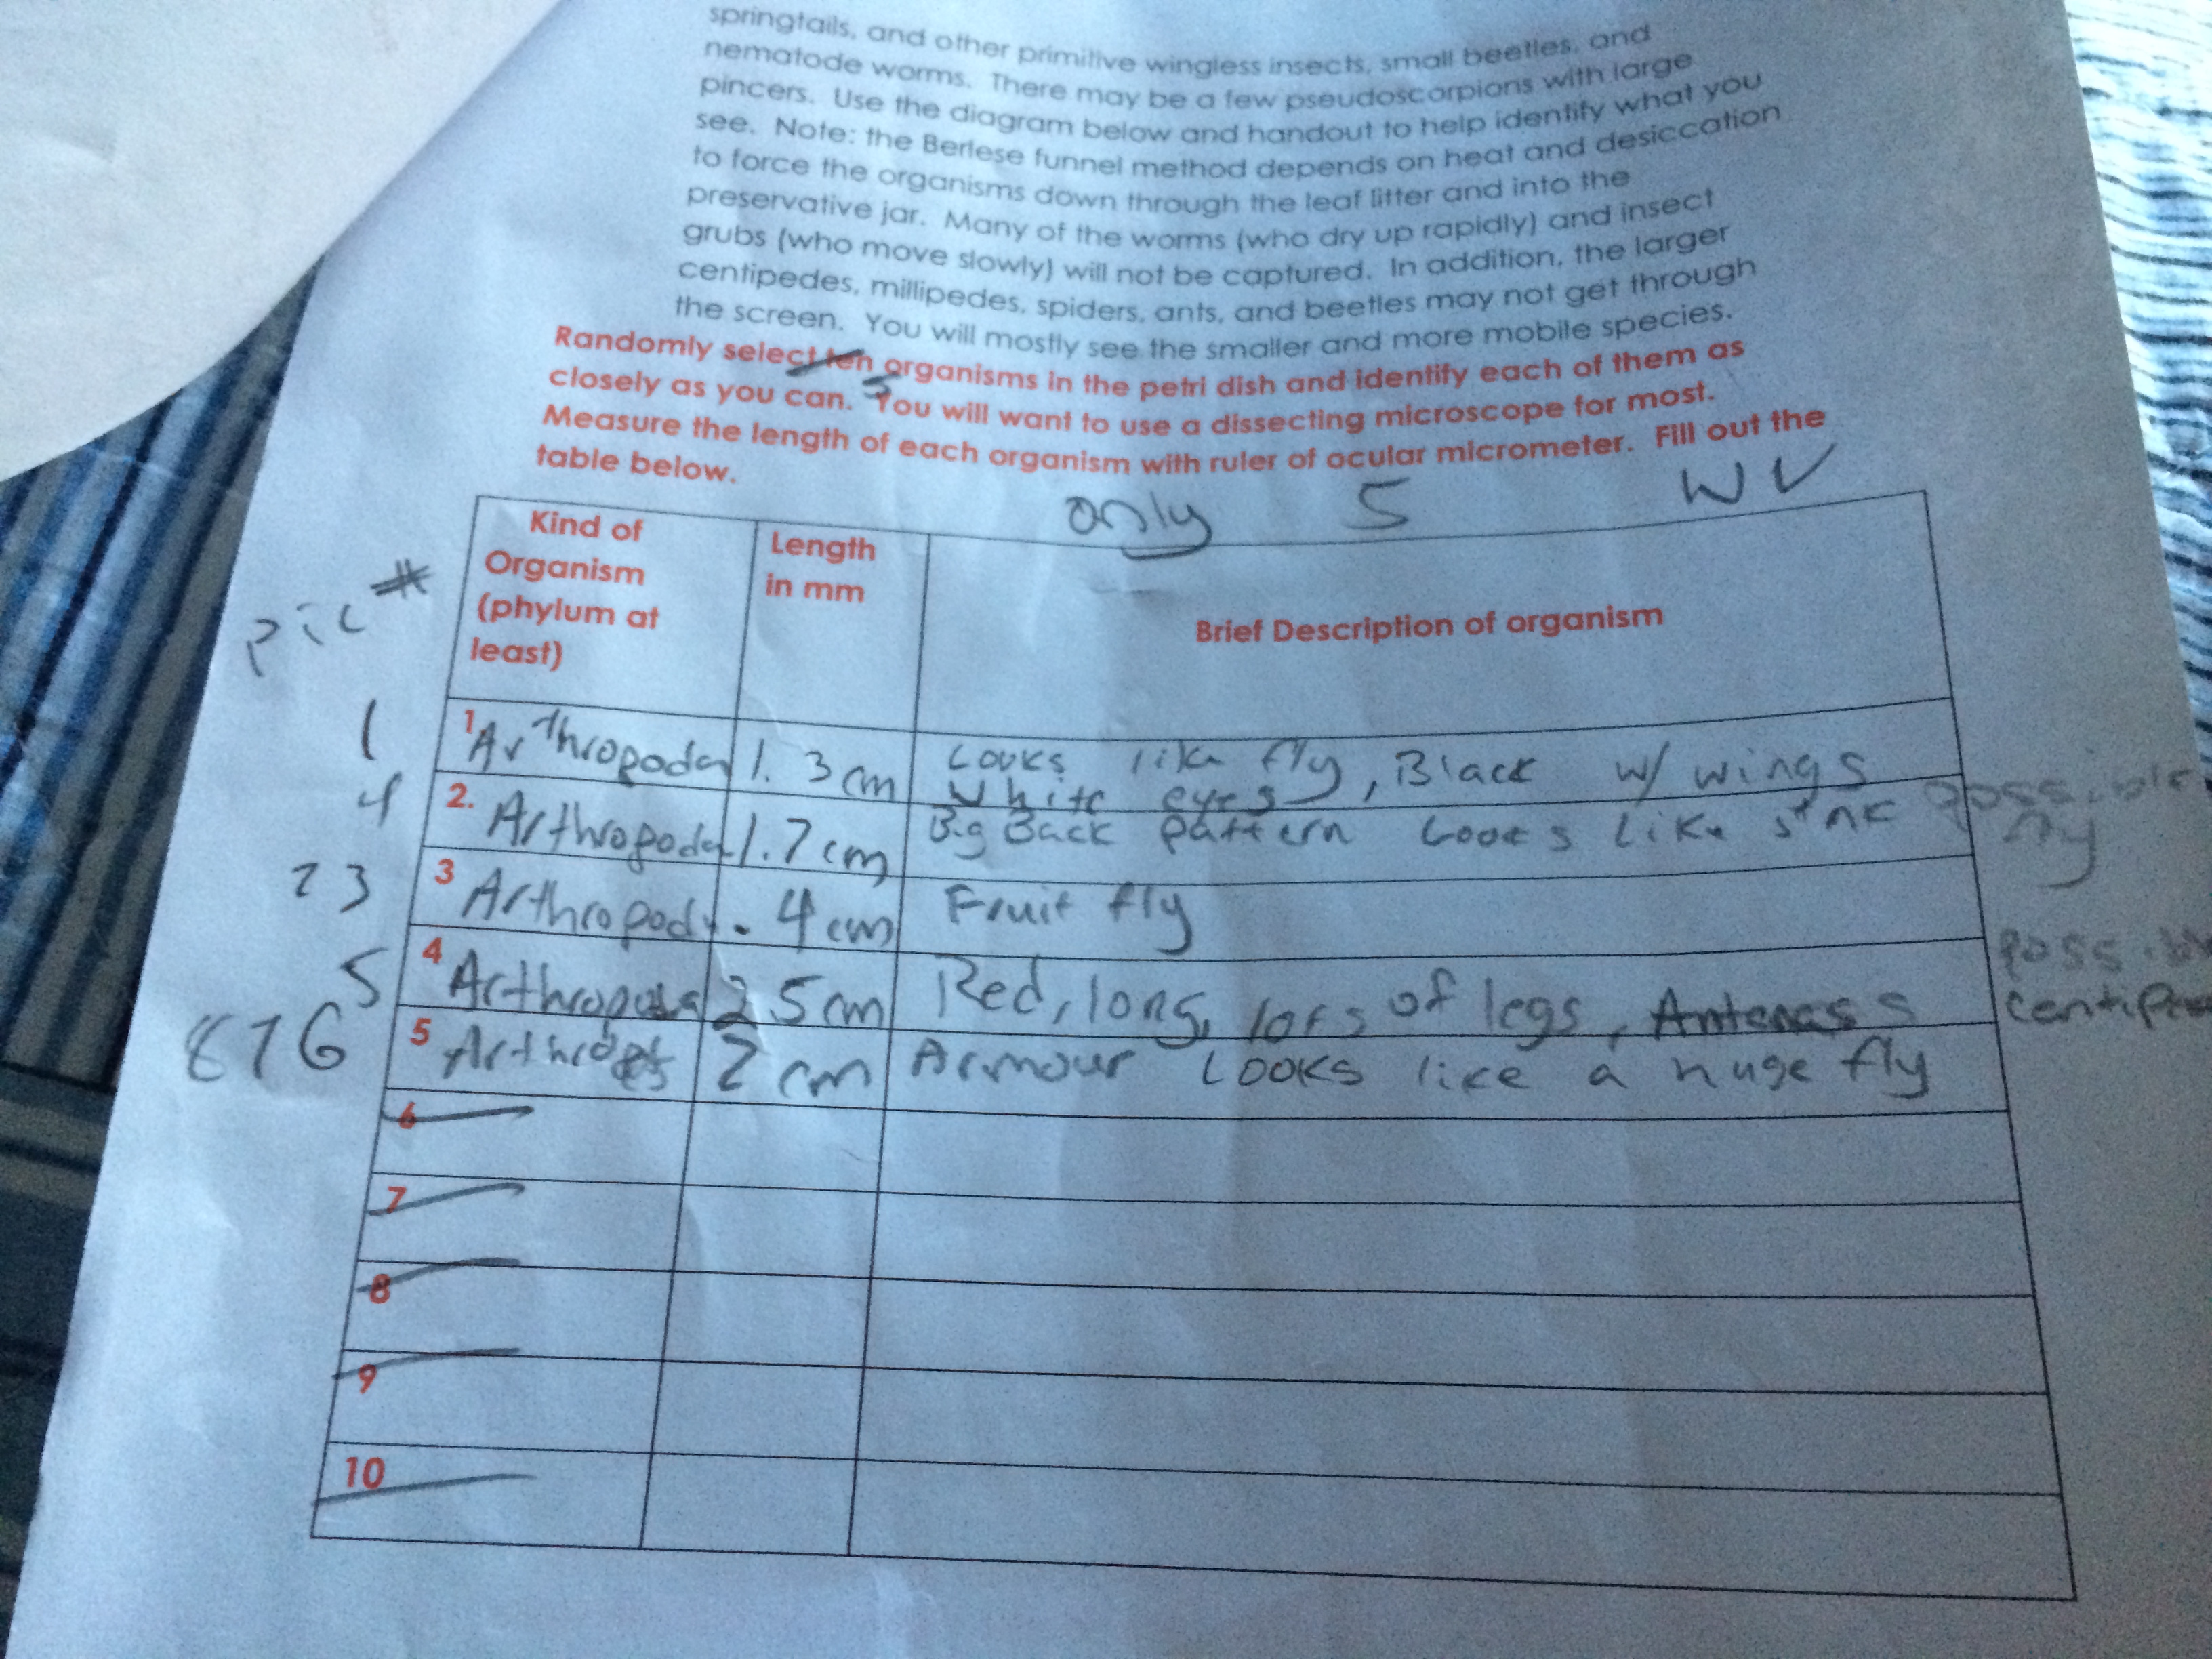 springtails, and other primitive wingless insects, small beetles, and
nematode worms. There may be a few pseudoscorpions with large
pincers. Use the diagram below and handout to help identify what you
see. Note: the Berlese funnel method depends on heat and desiccation
to force the organisms down through the leaf litter and into the
preservative jar. Many of the worms (who dry up rapidly) and insect
grubs (who move slowly) will not be captured. In addition, the larger
centipedes, millipedes, spiders, ants, and beetles may not get through
the screen. You will mostly see the smaller and more mobile species.
Randomly select ten organisms in the petri dish and identify each of them as
5
closely as you can. You will want to use a dissecting microscope for most.
Measure the length of each organism with ruler of ocular micrometer. Fill out the
table below.
only 5
pic #
Kind of
Organism
(phylum at
least)
Length
in mm
Brief Description of organism
1
1 Arthropoda
1.3 cm
Looks like fly, Black w/ wings
White eyes
4
2. Arthropoda
1.7 cm
Big Back pattern Looks Like
possible
fly
2 3
3 Arthropoda
.4 cm
Fruit fly
5
4 Arthropoda
5 cm
Red, long, lots of legs, Antenas
5
5 cm
876
2 cm
Armour Looks like a huge fly
6
7
8
9
10